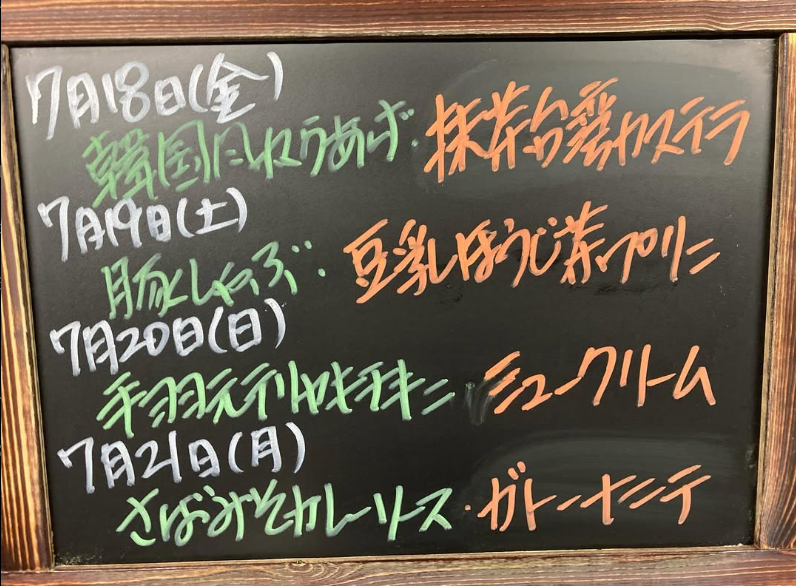 7月18日(金)
韓国風からあげ・抹茶台湾カステラ
7月19日(土)
豚しゃぶ・豆乳ほうじ茶プリン
7月20日(日)
手羽元テリヤキチキン・シュークリーム
7月21日(月)
さばみそカレーソース・ガトーナンテ